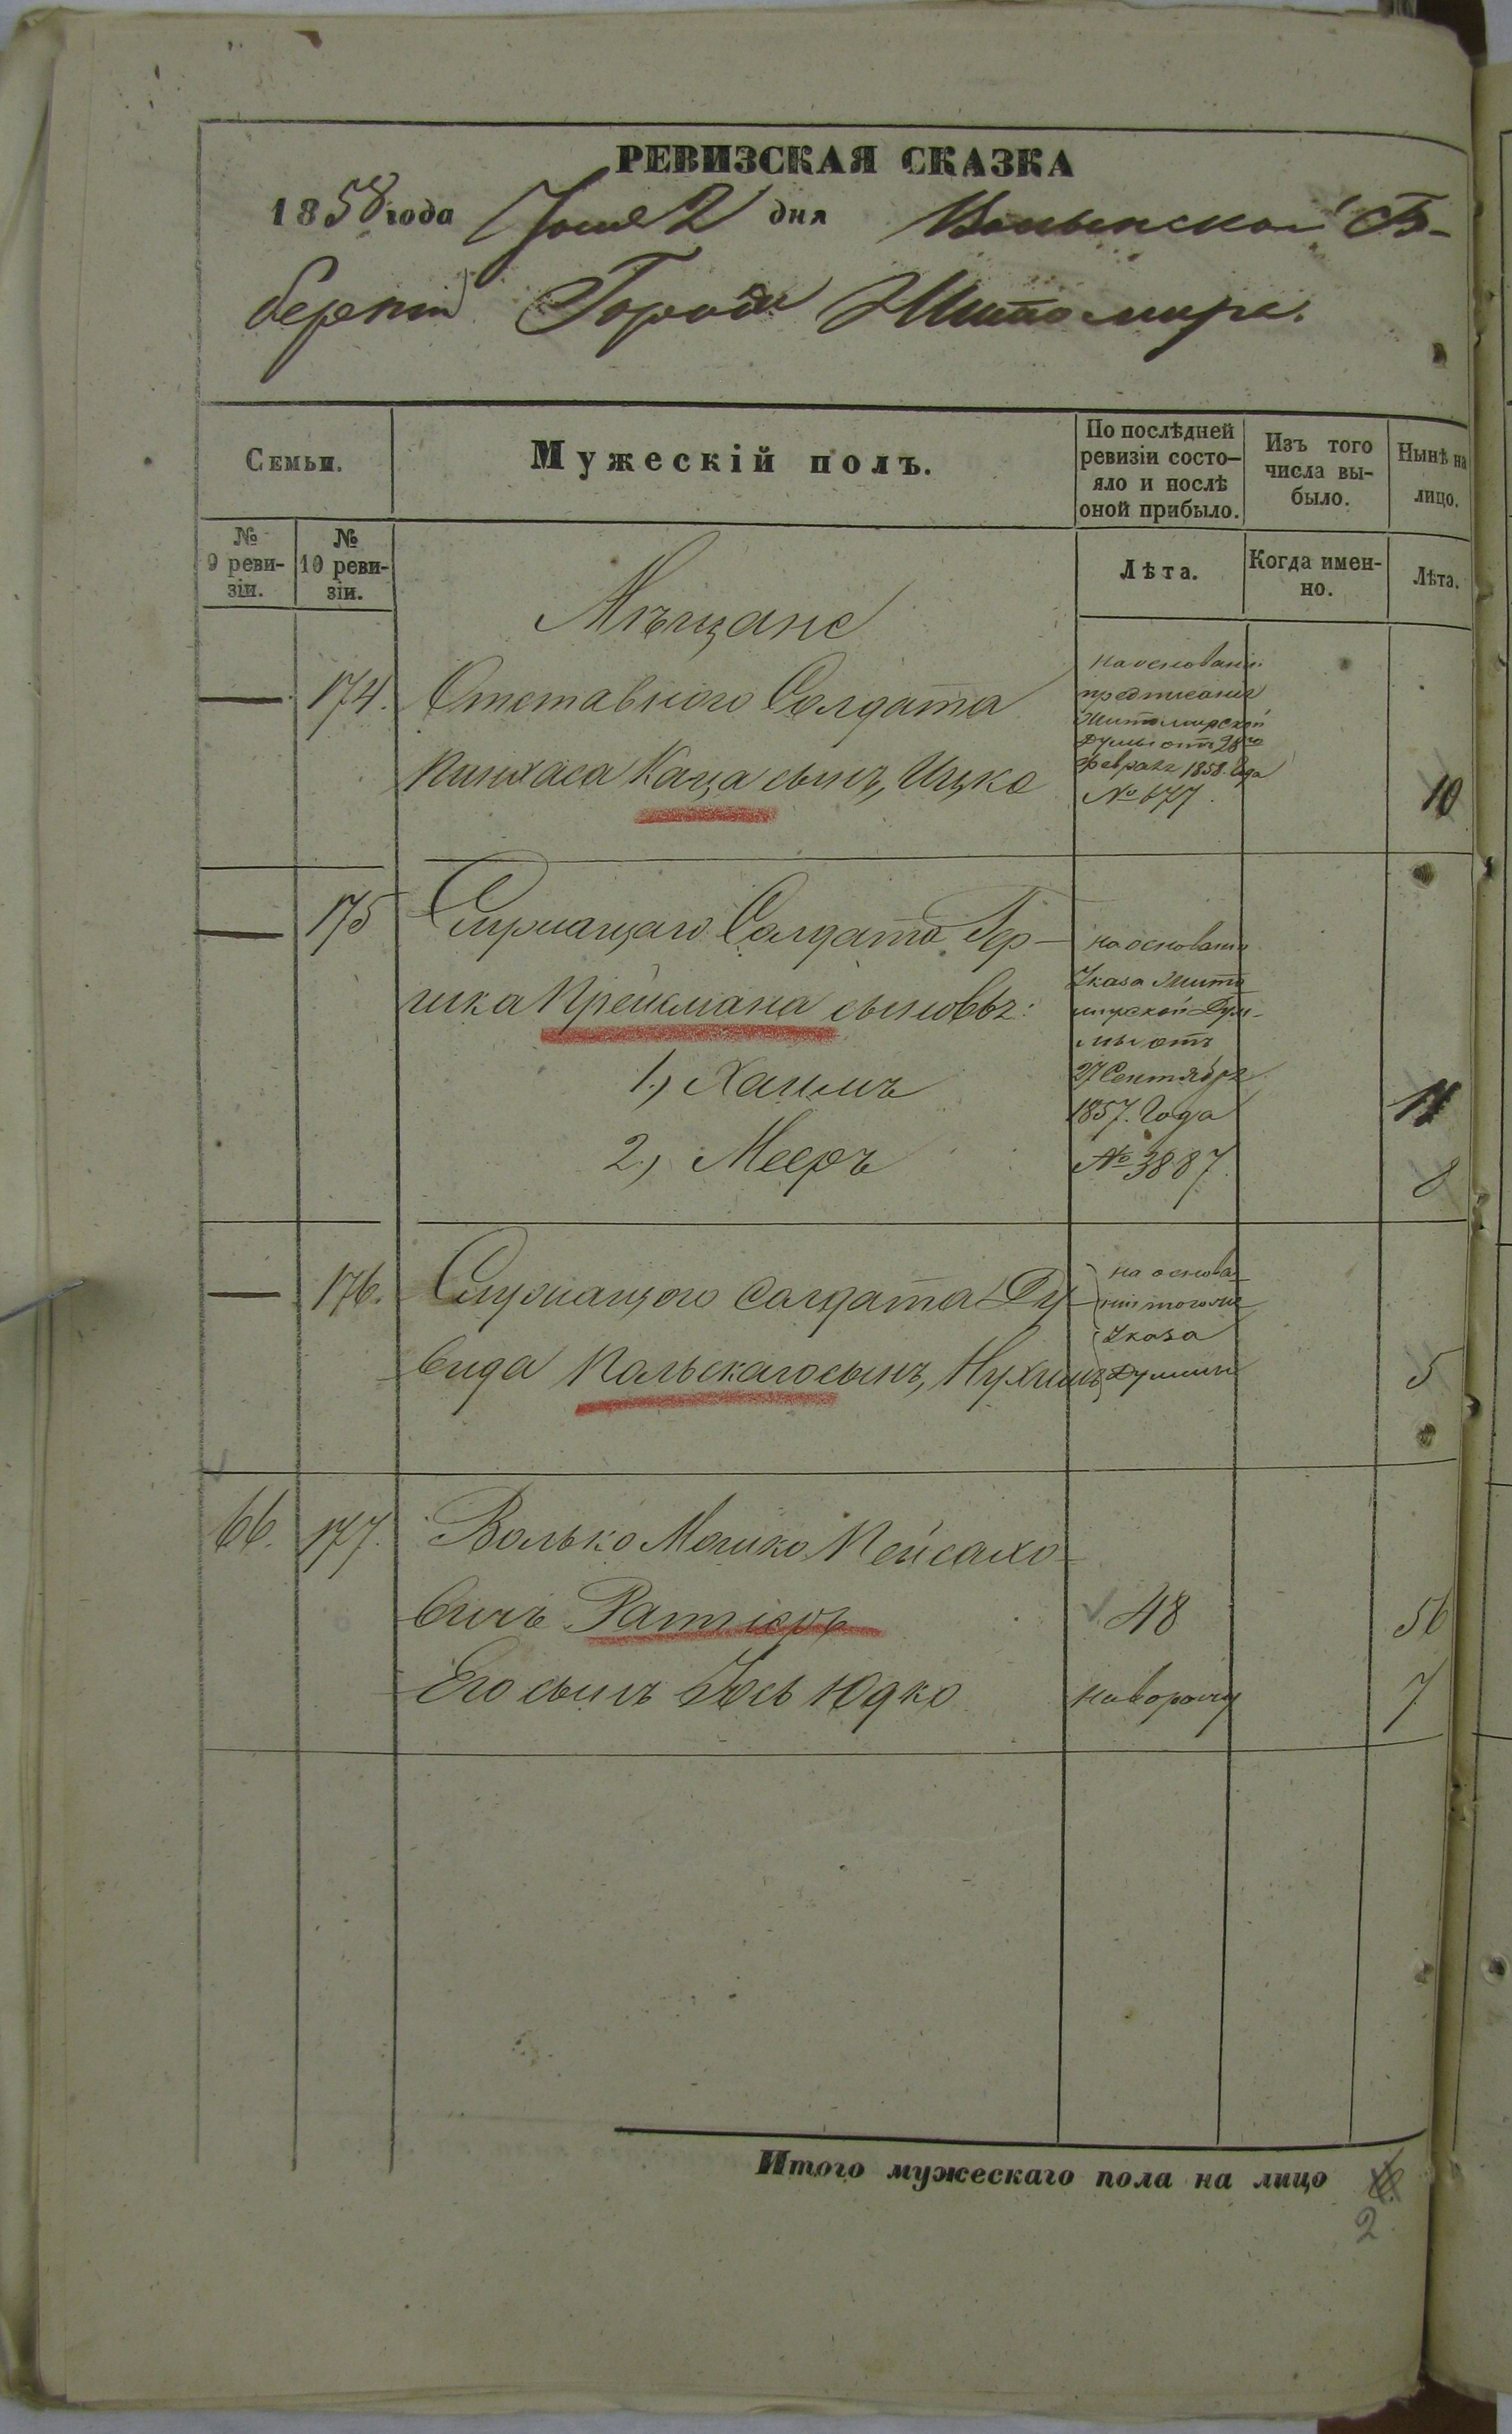 РЕВИЗСКАЯ СКАЗКА
1858 года Іюня 2 дня Волынской Гу-
берніи Города Житомира.
Семьи.
Мужескій полъ.
По послѣдней
ревизіи состо-
яло и послѣ
оной прибыло.
Изъ того
числа вы-
было.
Нынѣ на
лицо.
№
9 реви-
зіи.
№
10 реви-
зіи.
Лѣта.
Когда имен-
но.
Лѣта.
Мѣщане
— 174. Отставного Солдата
Пинхаса Каца сынъ, Ицко 10
на основаніи
предписанія
Житомирской
Думы отъ 28го
Февраля 1858. Года
№ 677.
— 175 Служащаго Солдата Гер-
шка Крейсмана сыновья:
1., Хаимъ 11
2., Мееръ 8
на основаніи
Указа Жито
мирской Ду-
мы отъ
27 Сентября
1857. Года
№ 3887.
— 176. Служащаго Солдата Ду-
вида Польскаго сынъ, Нухимъ 5
на основа-
ніи того же
Указа
Думы
66. 177. Волько Мошко Пейсахо-
вичъ 48 56
Его сынъ Іось Юдко 7
Итого мужескаго пола на лицо
2